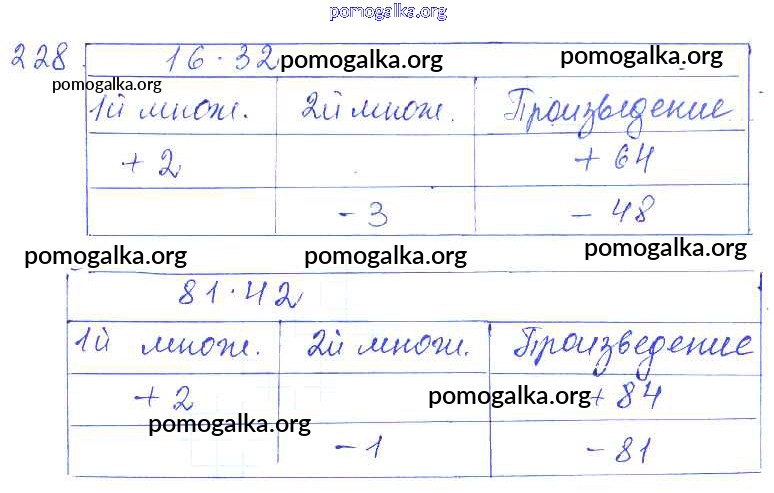 pomogalka.org
228. 16 · 32 pomogalka.org pomogalka.org
pomogalka.org
1й множ. 2й множ. Произведение
+ 2 + 64
- 3 - 48
pomogalka.org pomogalka.org pomogalka.org
81 · 42
1й множ. 2й множ. Произведение
+ 2 pomogalka.org + 84
pomogalka.org
- 1 - 81